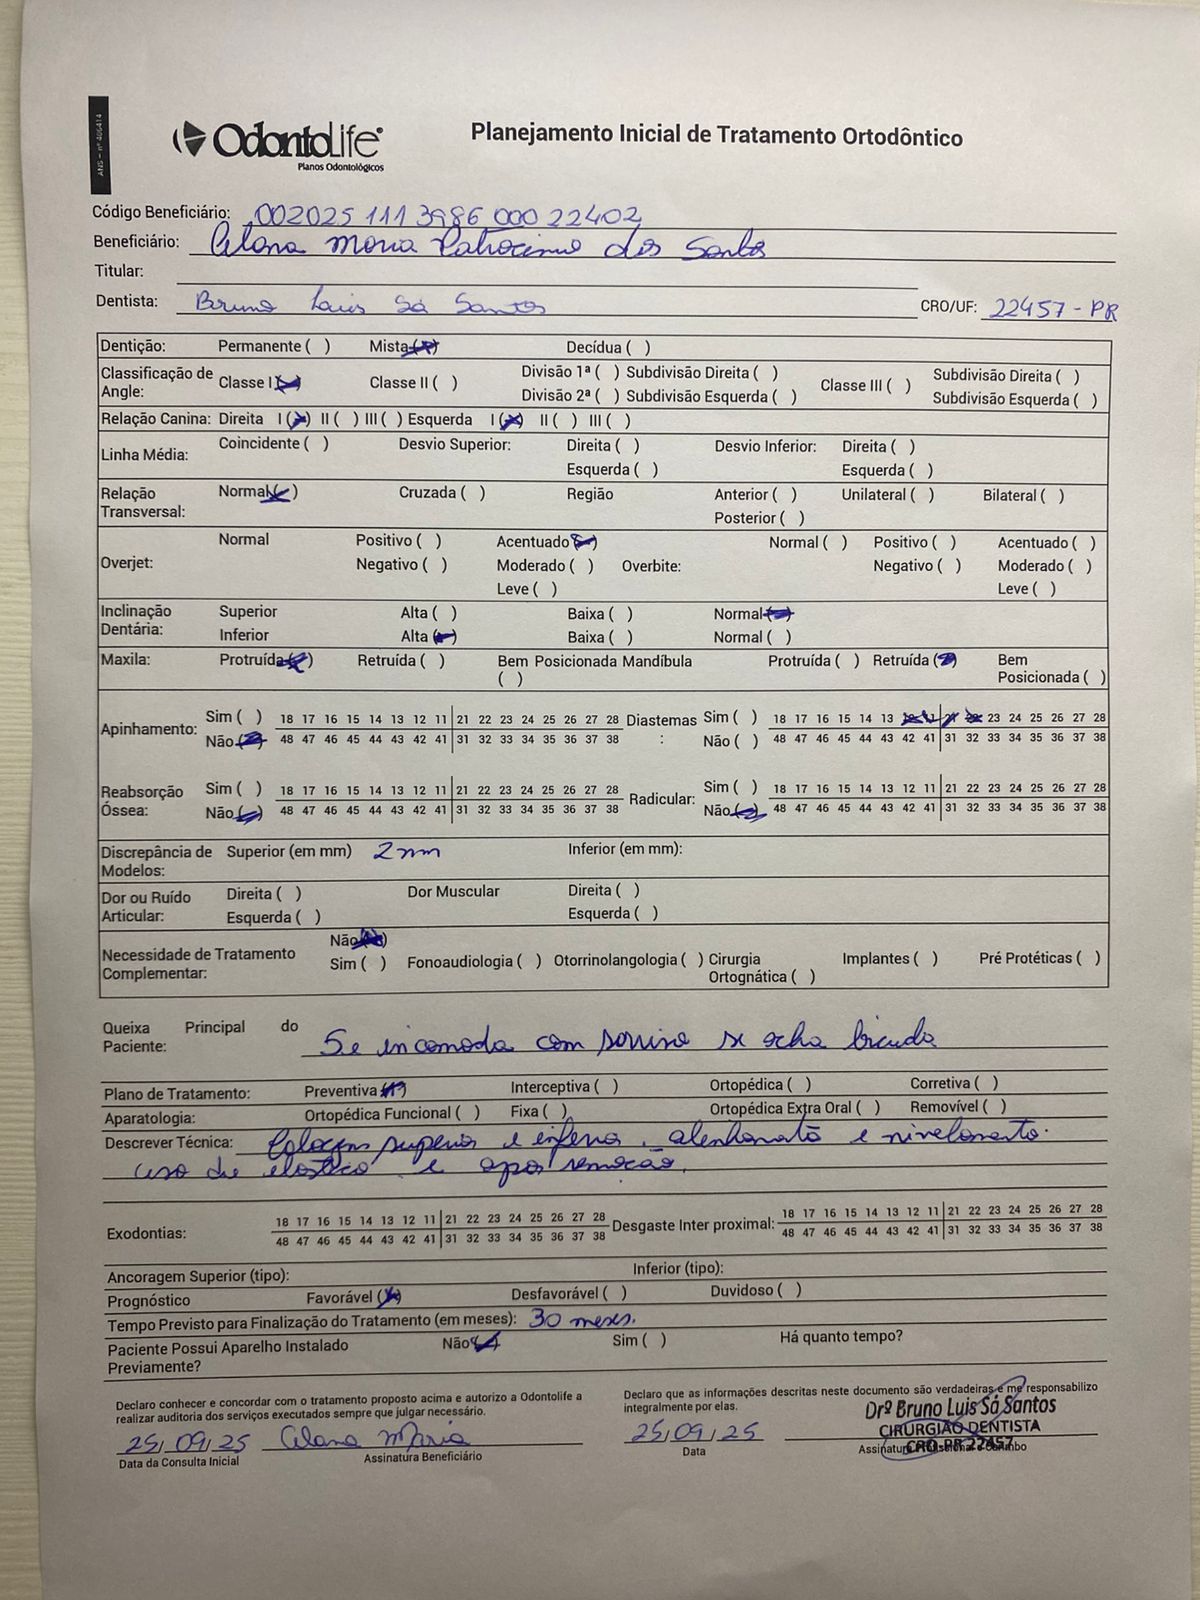 ANS – nº 406414
OdontoLife®
Planos Odontológicos
Planejamento Inicial de Tratamento Ortodôntico
Código Beneficiário: 002025 111 3986 000 22402
Beneficiário: Alana Maria Patrocinio dos Santos
Titular:
Dentista: Bruno Luis Sá Santos CRO/UF: 22457 - PR
Dentição: Permanente ( ) Mista (x) Decídua ( )
Classificação de Angle: Classe I (x) Classe II ( ) Divisão 1ª ( ) Subdivisão Direita ( ) Classe III ( ) Subdivisão Direita ( )
Divisão 2ª ( ) Subdivisão Esquerda ( ) Subdivisão Esquerda ( )
Relação Canina: Direita I (x) II ( ) III ( ) Esquerda I (x) II ( ) III ( )
Linha Média: Coincidente ( ) Desvio Superior: Direita ( ) Desvio Inferior: Direita ( )
Esquerda ( ) Esquerda ( )
Relação Transversal: Normal (x) Cruzada ( ) Região Anterior ( ) Unilateral ( ) Bilateral ( )
Posterior ( )
Overjet: Normal Positivo ( ) Acentuado (x) Overbite: Normal ( ) Positivo ( ) Acentuado ( )
Negativo ( ) Moderado ( ) Negativo ( ) Moderado ( )
Leve ( ) Leve ( )
Inclinação Dentária: Superior Alta ( ) Baixa ( ) Normal (x)
Inferior Alta (x) Baixa ( ) Normal ( )
Maxila: Protruída (x) Retruída ( ) Bem Posicionada ( ) Mandíbula Protruída ( ) Retruída (x) Bem Posicionada ( )
Apinhamento: Sim ( ) 18 17 16 15 14 13 12 11 21 22 23 24 25 26 27 28 Diastemas : Sim ( ) 18 17 16 15 14 13 12 11 21 22 23 24 25 26 27 28
Não (x) 48 47 46 45 44 43 42 41 31 32 33 34 35 36 37 38 Não ( ) 48 47 46 45 44 43 42 41 31 32 33 34 35 36 37 38
Reabsorção Óssea: Sim ( ) 18 17 16 15 14 13 12 11 21 22 23 24 25 26 27 28 Radicular: Sim ( ) 18 17 16 15 14 13 12 11 21 22 23 24 25 26 27 28
Não (x) 48 47 46 45 44 43 42 41 31 32 33 34 35 36 37 38 Não (x) 48 47 46 45 44 43 42 41 31 32 33 34 35 36 37 38
Discrepância de Modelos: Superior (em mm) 2mm Inferior (em mm):
Dor ou Ruído Articular: Direita ( ) Dor Muscular Direita ( )
Esquerda ( ) Esquerda ( )
Necessidade de Tratamento Complementar: Não (x)
Sim ( ) Fonoaudiologia ( ) Otorrinolangologia ( ) Cirurgia Ortognática ( ) Implantes ( ) Pré Protéticas ( )
Queixa Principal do Paciente: Se incomoda com sorriso se acha bicuda
Plano de Tratamento: Preventiva (x) Interceptiva ( ) Ortopédica ( ) Corretiva ( )
Aparatologia: Ortopédica Funcional ( ) Fixa ( ) Ortopédica Extra Oral ( ) Removível ( )
Descrever Técnica: Colagem superior e inferior, alinhamento e nivelamento.
uso de elastico e apos remoção.
Exodontias: 18 17 16 15 14 13 12 11 21 22 23 24 25 26 27 28 Desgaste Inter proximal: 18 17 16 15 14 13 12 11 21 22 23 24 25 26 27 28
48 47 46 45 44 43 42 41 31 32 33 34 35 36 37 38 48 47 46 45 44 43 42 41 31 32 33 34 35 36 37 38
Ancoragem Superior (tipo): Inferior (tipo):
Prognóstico Favorável (x) Desfavorável ( ) Duvidoso ( )
Tempo Previsto para Finalização do Tratamento (em meses): 30 meses.
Paciente Possui Aparelho Instalado Previamente? Não (x) Sim ( ) Há quanto tempo?
Declaro conhecer e concordar com o tratamento proposto acima e autorizo a Odontolife a realizar auditoria dos serviços executados sempre que julgar necessário.
Declaro que as informações descritas neste documento são verdadeiras e me responsabilizo integralmente por elas.
25/09/25 Alana Maria 25/09/25
Drº Bruno Luis Sá Santos
CIRURGIÃO DENTISTA
CRO-PR 22457
Data da Consulta Inicial Assinatura Beneficiário Data